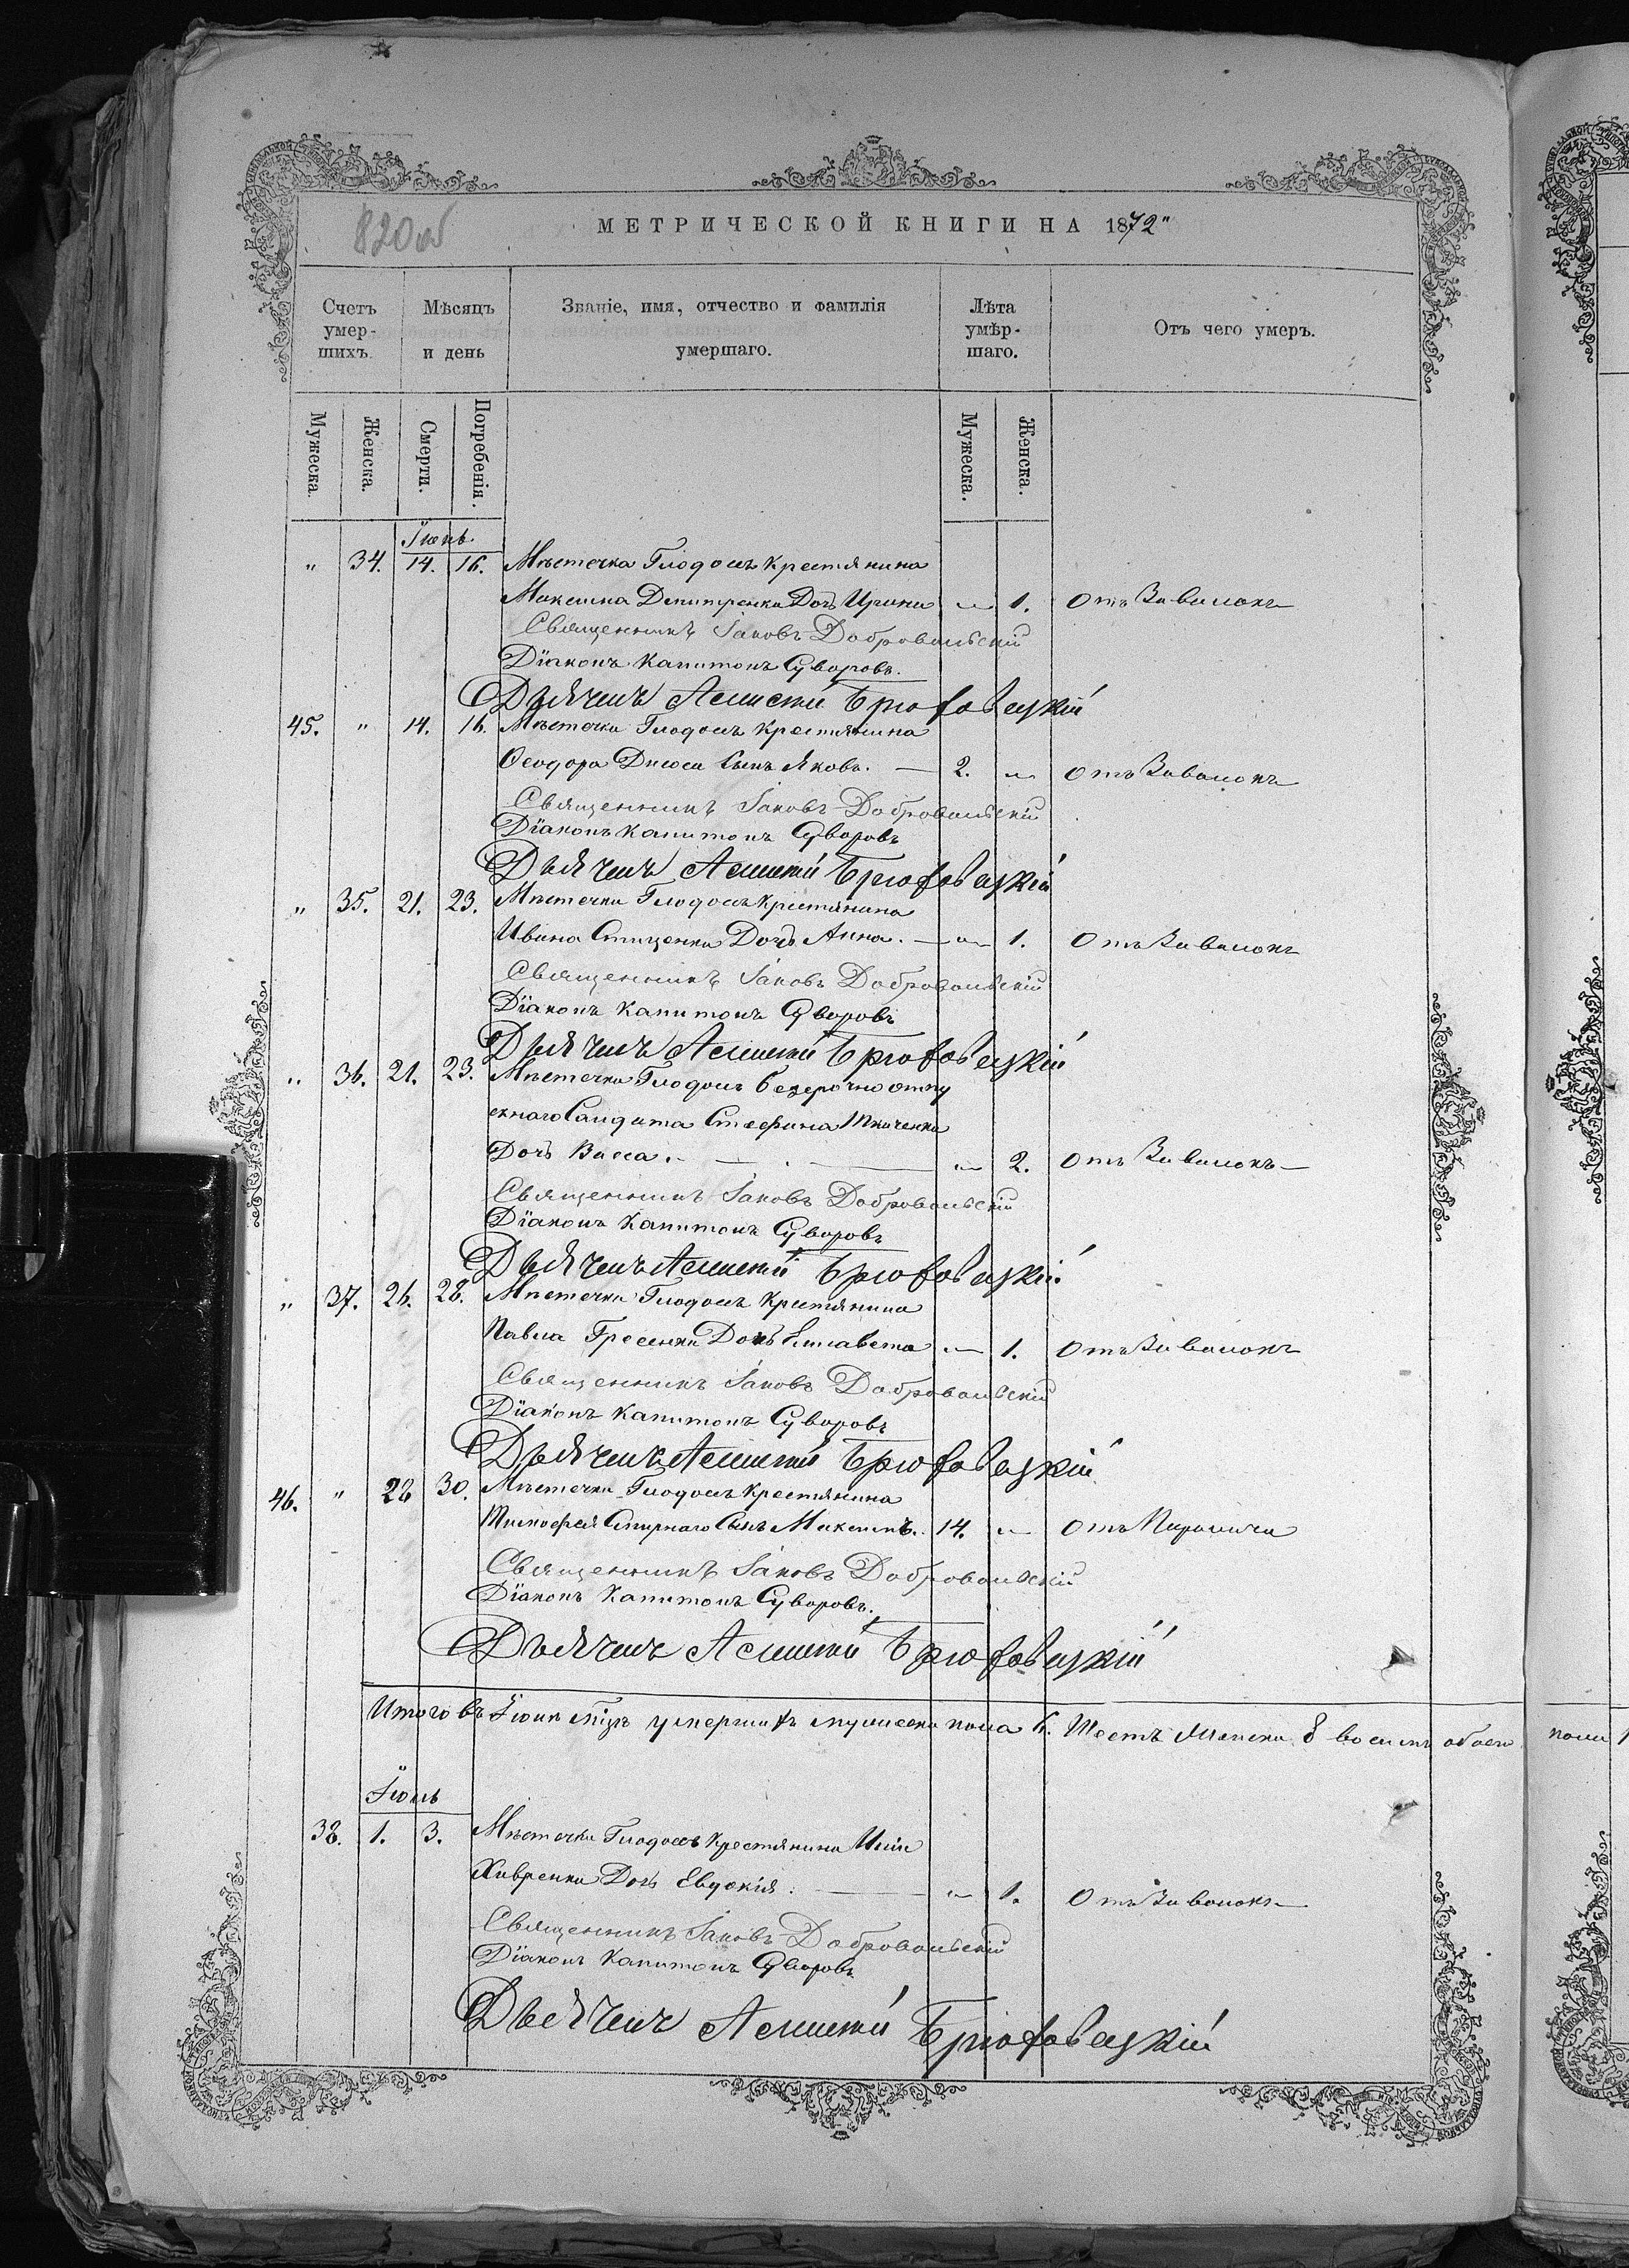 820об
МЕТРИЧЕСКОЙ КНИГИ НА 1872"
Счетъ умер- шихъ.
Мѣсяцъ и день
Званіе, имя, отчество и фамилія умершаго.
Лѣта умѣр- шаго.
Отъ чего умеръ.
Мужеска. Женска. Смерти. Погребенія. Мужеска. Женска.
Іюнь
" 34. 14. 16. Мѣстечка Глодосъ крестянина
Максима Дмитренка Дочь Ирина " 1. Отъ Завалокъ
Священникъ Іаковъ Добровольскій
Діаконъ Капитонъ Суворовъ.
Дьячекъ Алексѣй Брюховецкій
45. " 14. 16. Мѣстечка Глодосъ крестянина
Ѳеодора Сынъ Яковъ. — 2. " Отъ Завалокъ
Священникъ Іаковъ Добровольскій
Діаконъ Капитонъ Суворовъ
Дьячекъ Алексѣй Брюховецкій
" 35. 21. 23. Мѣстечка Глодосъ крестянина
Ивана Стиценка Дочь Анна. — " 1. Отъ Завалокъ
Священникъ Іаковъ Добровольскій
Діаконъ Капитонъ Суворовъ
Дьячекъ Алексѣй Брюховецкій
" 36. 21. 23. Мѣстечка Глодосъ безсрочно отпу
скнаго Салдата Стефана Ткаченка
Дочь Васса. — " 2. Отъ Завалокъ
Священникъ Іаковъ Добровольскій
Діаконъ Капитонъ Суворовъ
Дьячекъ Алексѣй Брюховецкій
" 37. 26. 28. Мѣстечка Глодосъ крестянина
Павла Дочь Елисавета " 1. Отъ Завалокъ
Священникъ Іаковъ Добровольскій
Діаконъ Капитонъ Суворовъ
Дьячекъ Алексѣй Брюховецкій
46. " 28 30. Мѣстечка Глодосъ крестянина
Тимофея Смирнаго Сынъ Максимъ. 14. " Отъ Паралича
Священникъ Іаковъ Добровольскій
Діаконъ Капитонъ Суворовъ.
Дьячекъ Алексѣй Брюховецкій
Итого въ Іюнѣ м̃цѣ умершихъ мужеска пола 6. Шесть Женска 8 восемь обоего пола 1
Іюль
38. 1. 3. Мѣстечка Глодосъ крестянина Иліи
Хивренка Дочь Евдокія. — " 1. Отъ Завалокъ
Священникъ Іаковъ Добровольскій
Діаконъ Капитонъ Суворовъ
Дьячекъ Алексѣй Брюховецкій